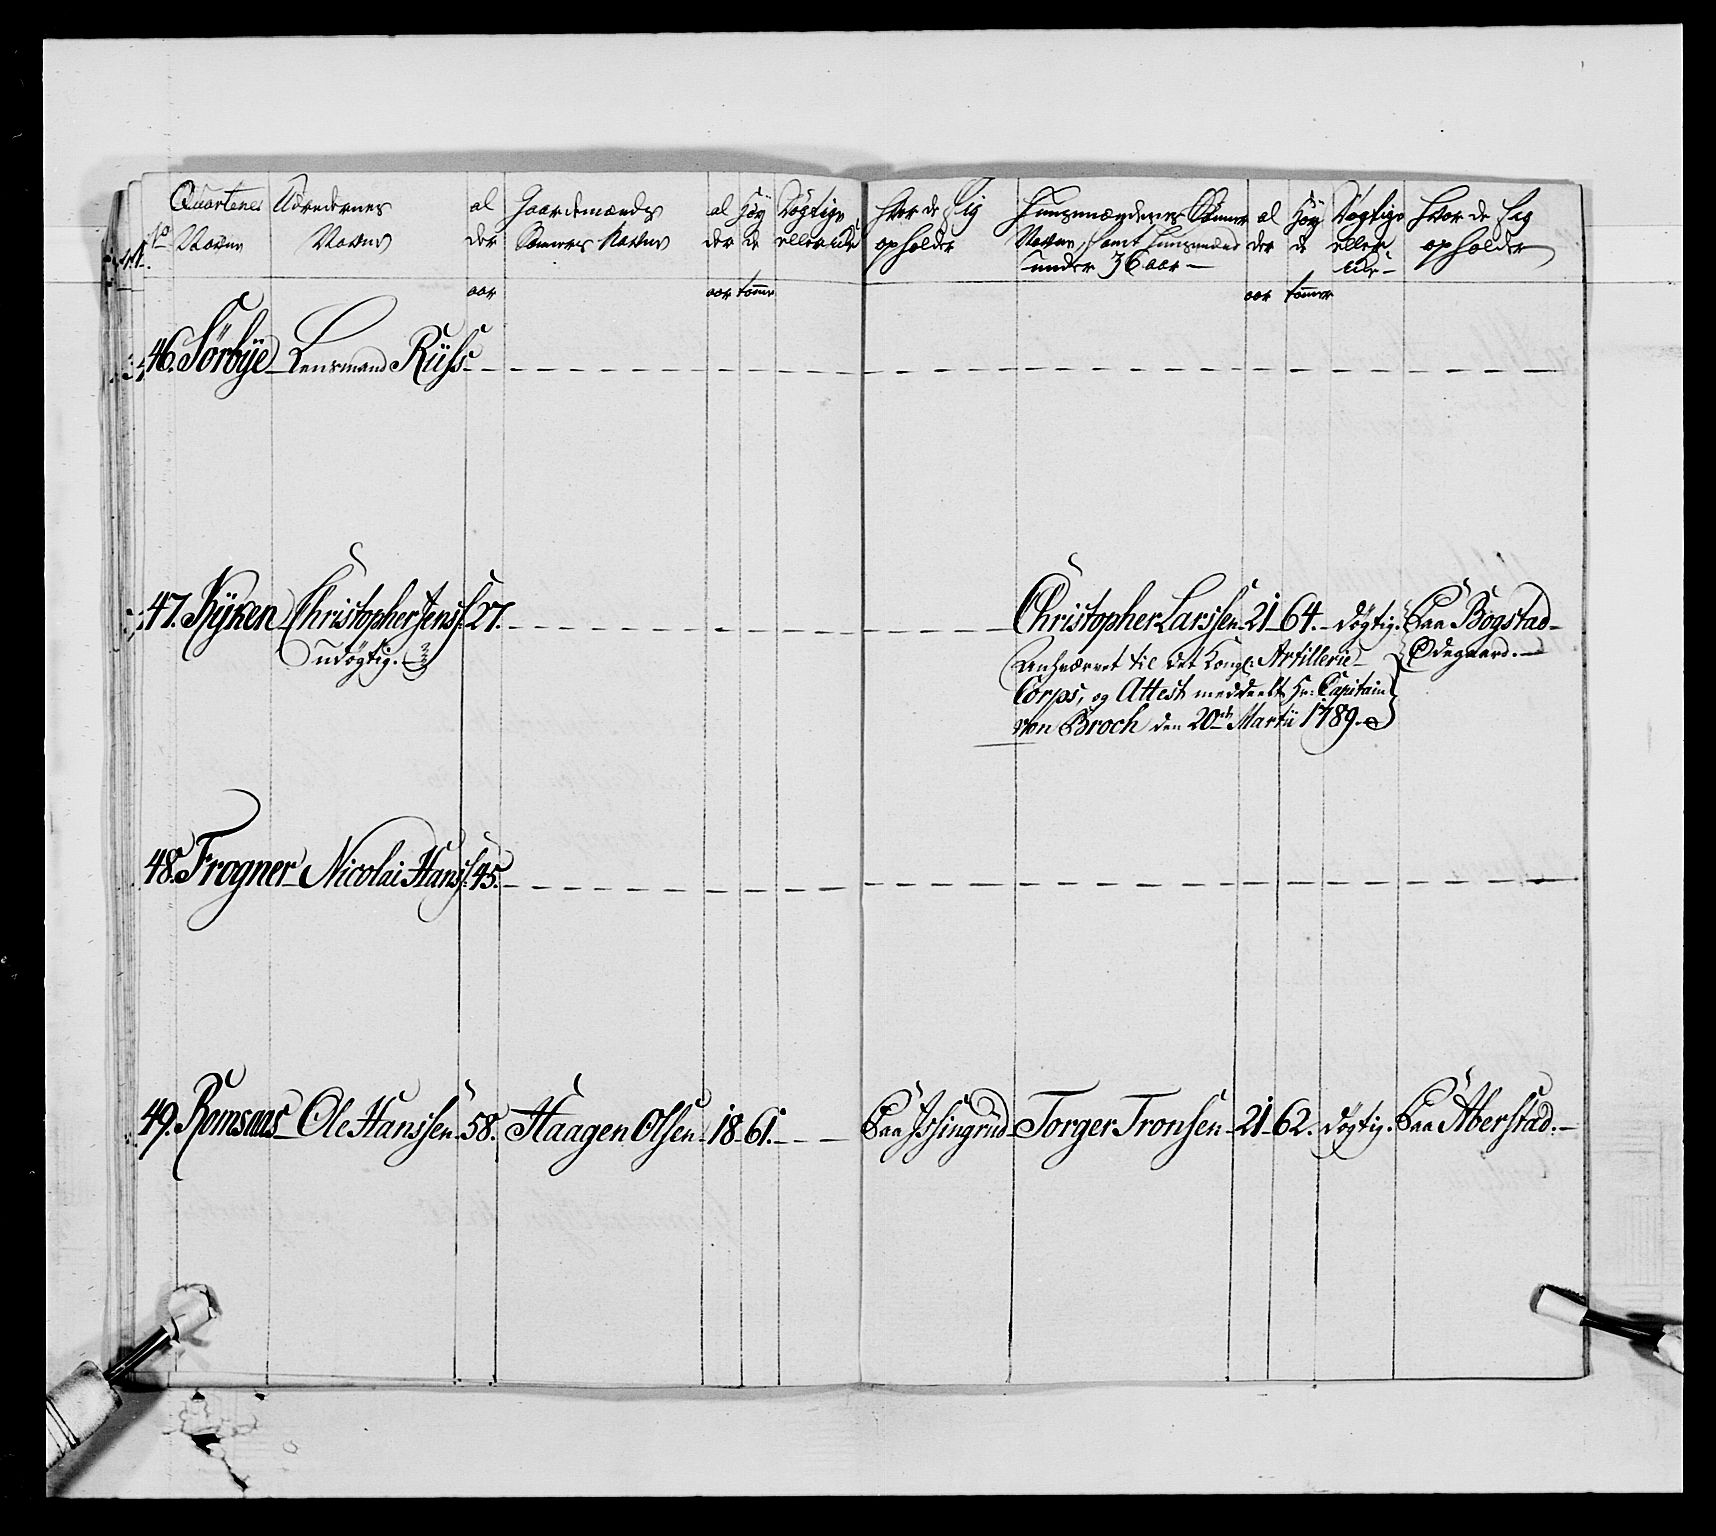 Quartenes Navne
No
Aboedernes Navne
al der
Gaardemænds Sønners Navne
al der
Høy de
Døgtige eller ikke
Hvor de sig opholder
Huusmændenes Sønner
Navne, samt Huusmænd
under 36 aar —
al der
Høy de
Døgtige eller ikke —
Hvor de sig opholder
aar
aar tommer
aar tommer
46. Sørbÿe — Lensmand Rüss
47. Rÿken — Christopher Jenss: 27. Christopher Larssen — 21 — 64. — døgtig. Paa Bogstad —
udøgtig. Ødegaard. —
Udhværvet til det Kongl: Artillerie
Corps, og Attest meddeelt Hr: Capitain
von Broch den 20de Martii 1789.
48. Frogner — Nicolai Hanss: 45.
49. Romsaas — Ole Hanssen — 58. Haagen Olsen — 18 — 61. Paa Issingrud — Torger Tronsen — 21 — 62. døgtig. Paa Aberstad. —